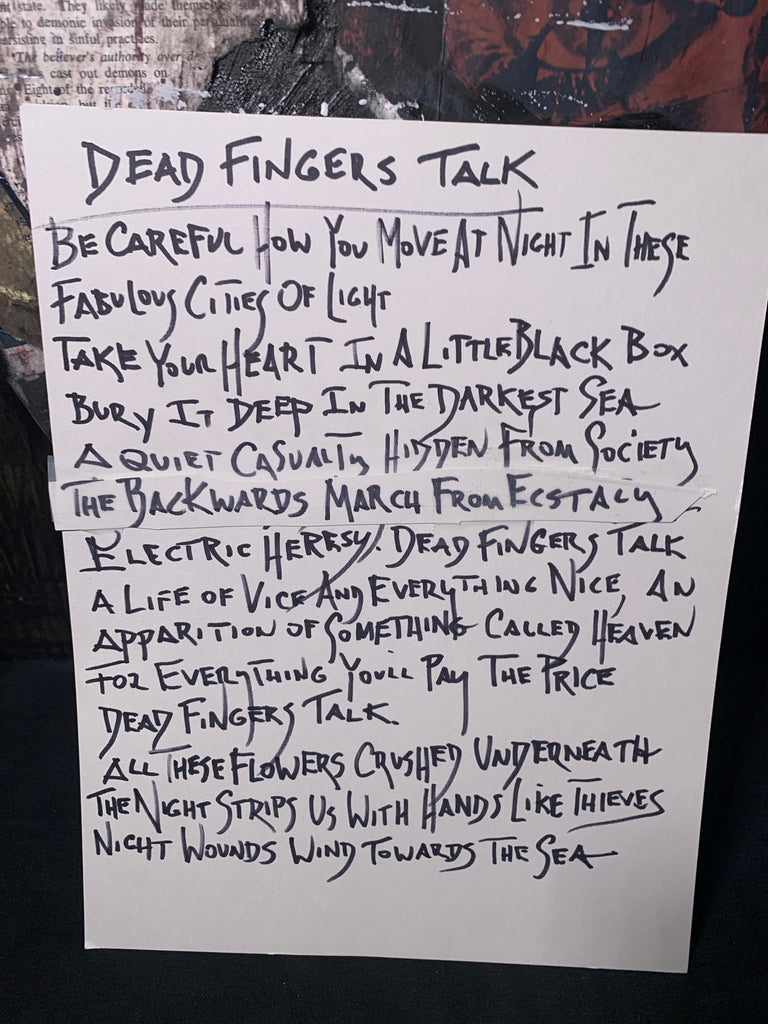 nt state. They likely made themselves sus
ble to demonic invasion of their personalities
ersisting in sinful practices.
"The believer's authority over de
cast out demons on
ns. Eight of the recorde
DEAD FINGERS TALK
BE CAREFUL HOW YOU MOVE AT NIGHT IN THESE
FABULOUS CITIES OF LIGHT
TAKE YOUR HEART IN A LITTLE BLACK BOX
BURY IT DEEP IN THE DARKEST SEA
A QUIET CASUALTY HIDDEN FROM SOCIETY
THE BACKWARDS MARCH FROM ECSTACY
ELECTRIC HERESY. DEAD FINGERS TALK
A LIFE OF VICE AND EVERYTHING NICE, AN
APPARITION OF SOMETHING CALLED HEAVEN
FOR EVERYTHING YOU'LL PAY THE PRICE
DEAD FINGERS TALK.
ALL THESE FLOWERS CRUSHED UNDERNEATH
THE NIGHT STRIPS US WITH HANDS LIKE THIEVES
NIGHT WOUNDS WIND TOWARDS THE SEA